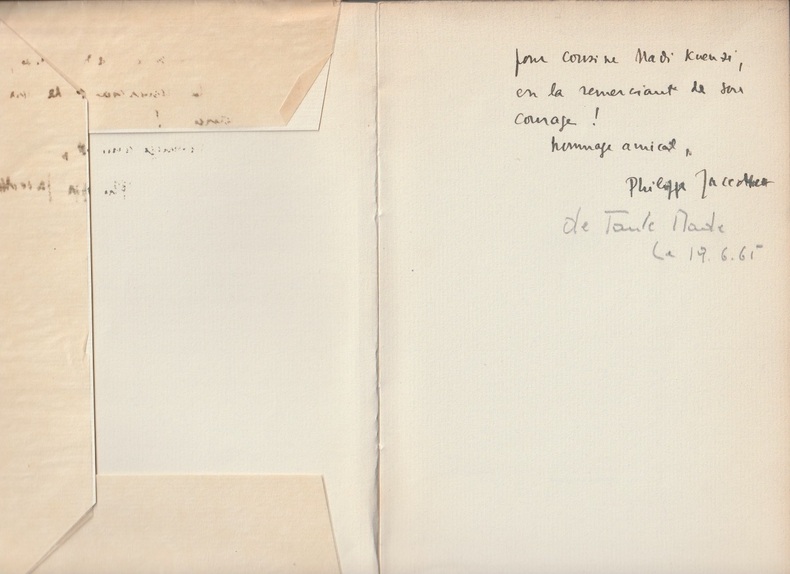 pour cousine Madi Kuenzi,
en la remerciant de son
courage !
hommage amical,
Philippe Jaccottet
de Tante Made
Le 19.6.65